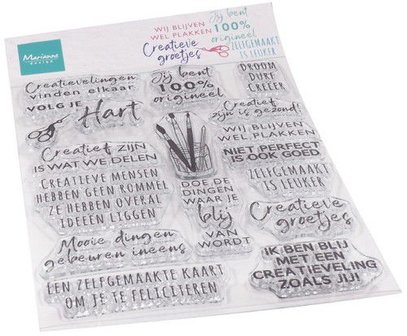 Marianne
design
WIJ BLIJVEN
WEL PLAKKEN
Creatieve
groetjes
Jij bent
100%
origineel
ZELFGEMAAKT
IS LEUKER
Creatievelingen
vinden elkaar
VOLG JE
Hart
Jij bent
100%
origineel
DROOM
DURF
CREËER
Creatief
zijn is gezond!
WIJ BLIJVEN
WEL PLAKKEN
Creatief ZIJN
IS WAT WE DELEN
NIET PERFECT
IS OOK GOED
CREATIEVE MENSEN
HEBBEN GEEN ROMMEL
ZE HEBBEN OVERAL
IDEEEN LIGGEN
DOE DE
DINGEN
WAAR JE
blij
VAN
WORDT
ZELFGEMAAKT
IS LEUKER
Creatieve
groetjes
Mooie dingen
gebeuren ineens
EEN ZELFGEMAAKTE KAART
OM JE TE FELICITEREN
IK BEN BLIJ
MET EEN
CREATIEVELING
ZOALS JIJ!